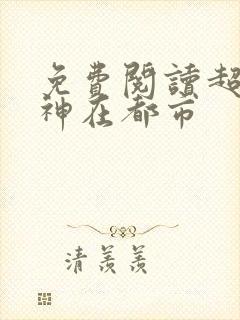 免費閱讀超
神在都市
清羨羨